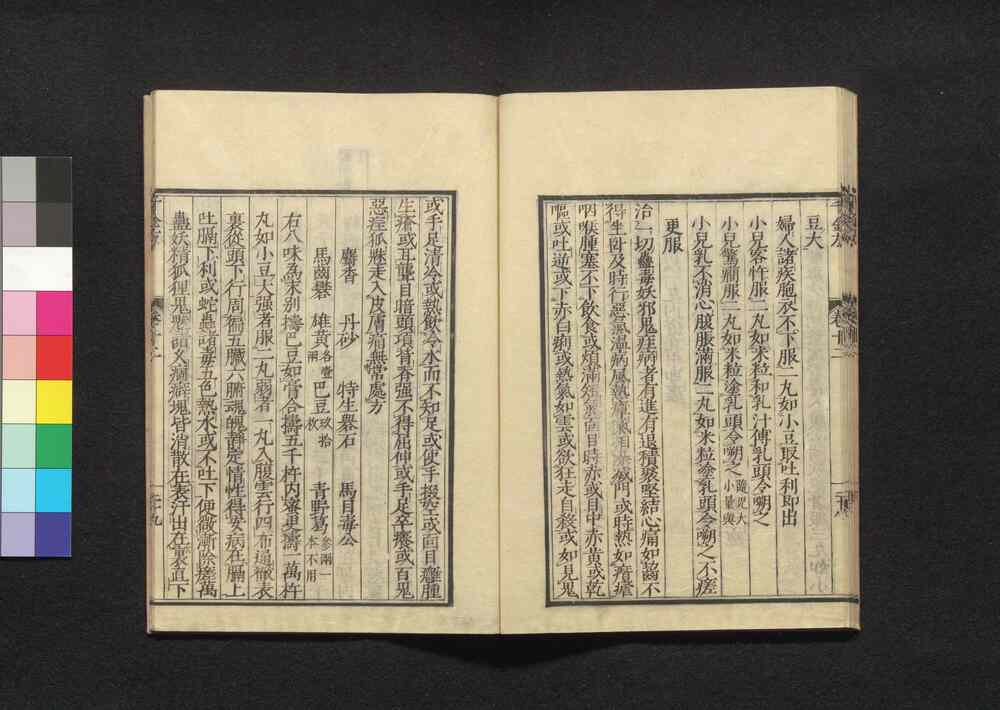 豆大
婦人諸疾胞衣不下服二丸如小豆取吐利即出
小兒客忤服二丸如米粒和乳汁傅乳頭令嗍之
小兒驚癇服二丸如米粒塗乳頭令嗍之隨兒大小量與
小兒乳不消心腹脹滿服二丸如米粒塗乳頭令嗍之不瘥
更服
治一切蠱毒妖邪鬼疰病者有進有退積聚堅結心痛如齧不
得坐臥及時行惡氣溫病風熱瘴氣相染滅門或時熱如瘖瘧
咽喉腫塞不下飲食或煩滿短氣面目時赤或目中赤黃或乾
嘔或吐逆或下赤白痢或熱氣如雲或欲狂走自殺或如見鬼
或手足清冷或熱飲冷水而不知足或使手掇空或面目癰腫
生瘡或耳聾目暗頭項背脊強不得屈伸或手足卒癢或百鬼
惡疰狐魅走入皮膚痛無常處方
麝香 丹砂 特生礜石 馬目毒公
馬齒礬 雄黃各壹兩 巴豆玖拾枚 青野葛參兩一本不用
右八味為末別擣巴豆如膏合擣五千杵內蜜更擣一萬杵
丸如小豆大强者服二丸弱者一丸入腹雲行四布通徹表
裏從頭下行周遍五臟六腑魂魄靜定情性得安病在膈上
吐膈下利或蛇蟲諸毒五色熱水或不吐下便微漸除瘥萬
蠱妖精狐狸鬼魅諸久癥癖塊皆消散在表汗出在裏直下